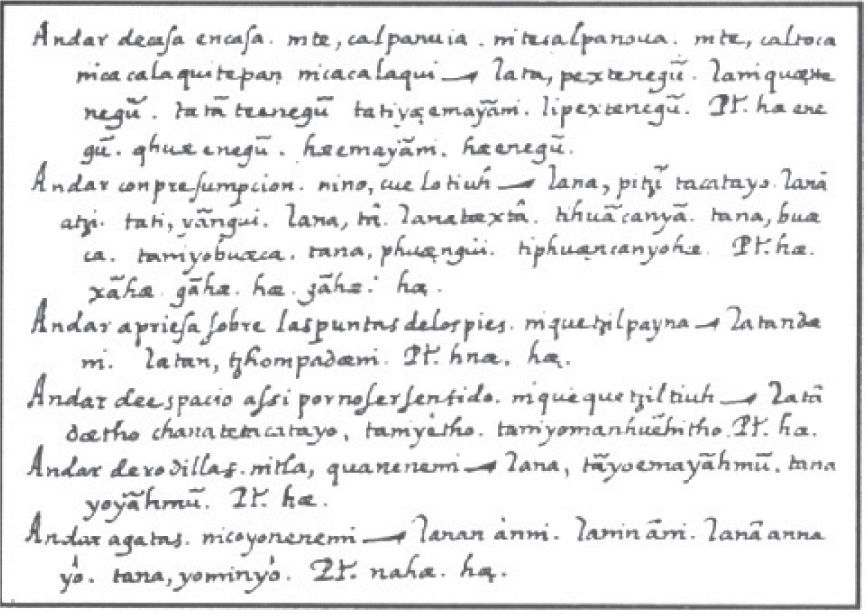 Andar decasa encasa. nite, calpanuia. nitecalpanoua. nite, caltoca
nicacalaquitepan nicacalaqui — lata, pextenegũ. lamiquæxte
negũ. tatãteenegũ tatiyæemayãmi. lipextenegũ. Pt. hæene
gũ. qhuæenegũ. hæemayãmi. hæenegũ.
Andar conpresumpcion. nino, cuelotiuh — lana, pitzi tacatayo. lanã
atzi. tati, yãngui. lana, tâ. lanatæxtâ. tihuãcanyã. tana, buæ
ca. tamiyobuæca. tana, phuængüi. tiphuæncanyohæ. Pt. hæ.
xãhæ. gãhæ. hæ. zãhæ. hæ.
Andar apriesa sobre laspuntas delospies. niquetzilpayna — latandæ
mi. latan, tzhompadæmi. Pt. hnæ. hæ.
Andar deespacio assi pornosersentido. niquequetziltiuh — latâ
dætho chanatetacatayo, tamyêtho. tamiyomanhuẽhitho. Pt. hæ.
Andar derodillas. nitla, quanenemi — lana, tãyoemayãhmũ. tana
yoyãhmũ. Pt. hæ.
Andar agatas. nicoyonenemi — lanan ânni. laminãmi. lanãanna
yò. tana, yominyò. Pt. nahæ. hæ.